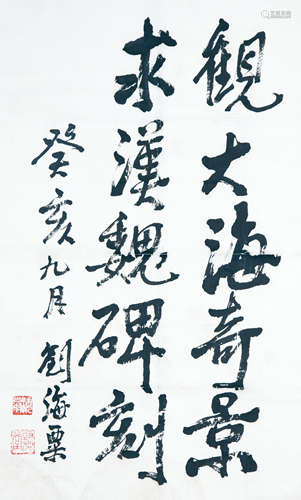 觀大海奇景
求漢魏碑刻
癸亥九月
劉海粟